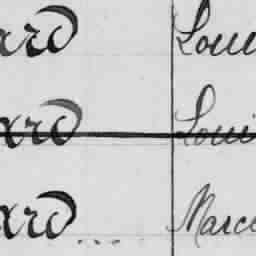 ard Loui
ard Loui
ard Marce